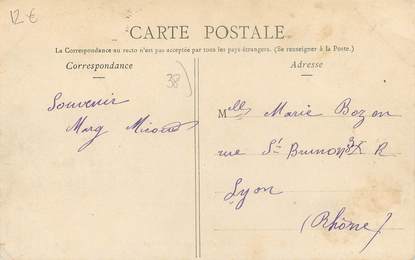 12 €
CARTE POSTALE
La Correspondance au recto n'est pas acceptée par tous les pays étrangers. (Se renseigner à la Poste.)
Correspondance
Adresse
38
Souvenir
Marg
Mlle Marie Bozon
rue St Bruno R
Lyon
(Rhône)